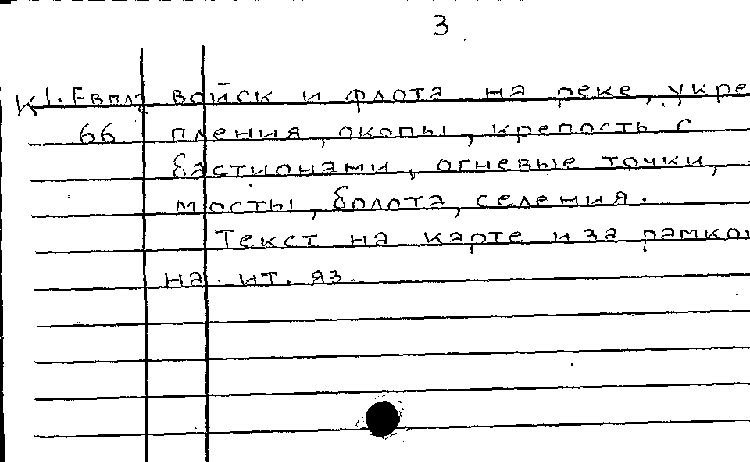 3
К1. Евпл2 войск и флота на реке, укре
66 пления, окопы, крепость с
бастионами, огневые точки,
мосты, болота, селения.
Текст на карте и за рамкой
на ит. яз.